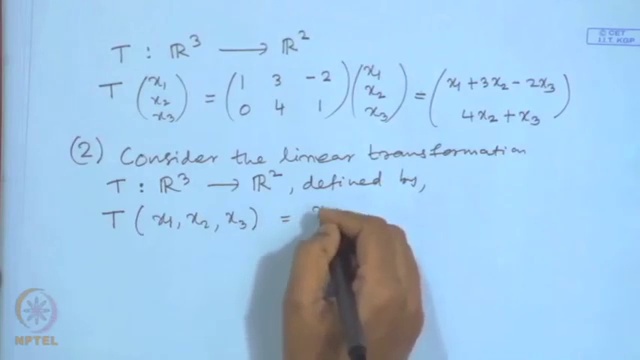 © CET
I.I.T. KGP
T : ℝ³ ⟶ ℝ²
T (x₁ x₂ x₃) = (1 3 -2 0 4 1) (x₁ x₂ x₃) = (x₁ + 3x₂ - 2x₃ 4x₂ + x₃)
(2) Consider the linear transformation
T : ℝ³ ⟶ ℝ², defined by,
T (x₁, x₂, x₃) =
NPTEL